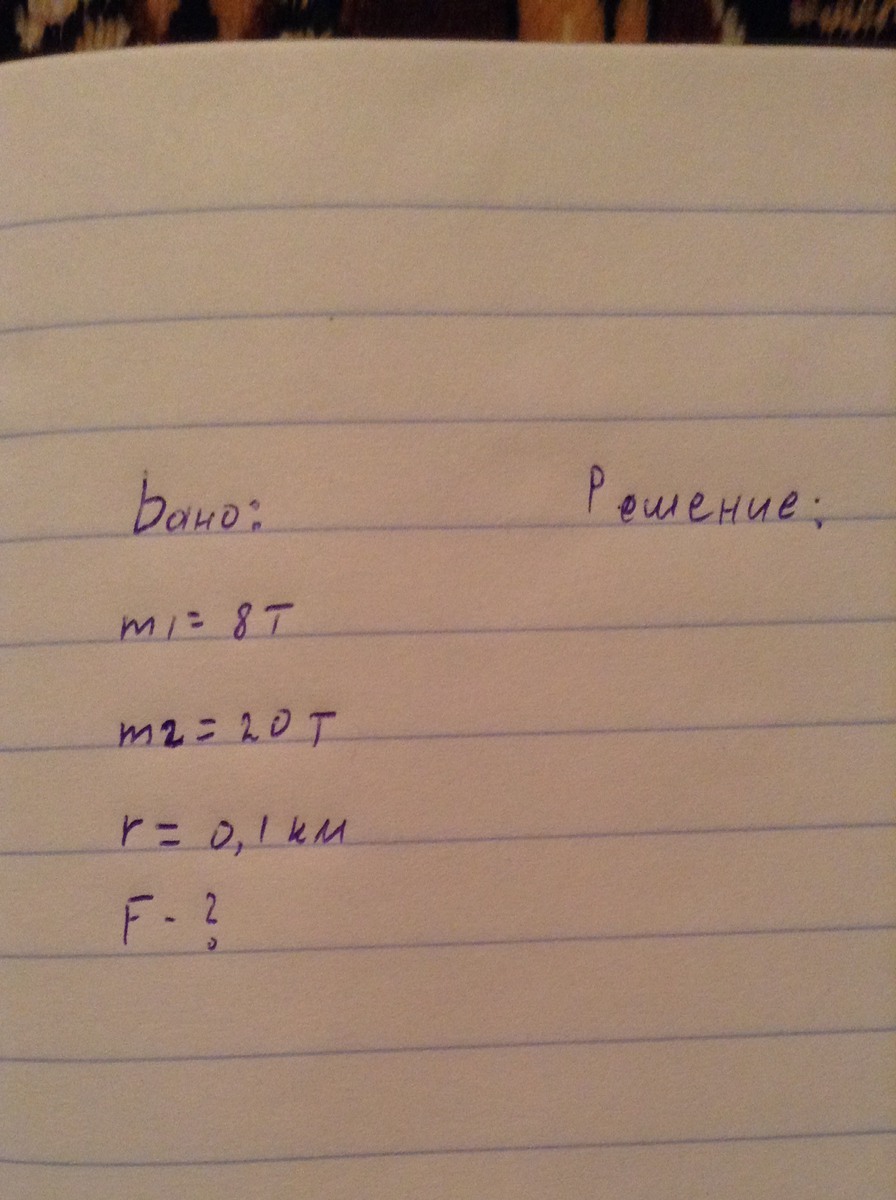 Дано:
Решение:
m1 = 8 т
m2 = 20 т
r = 0,1 км
F - ?